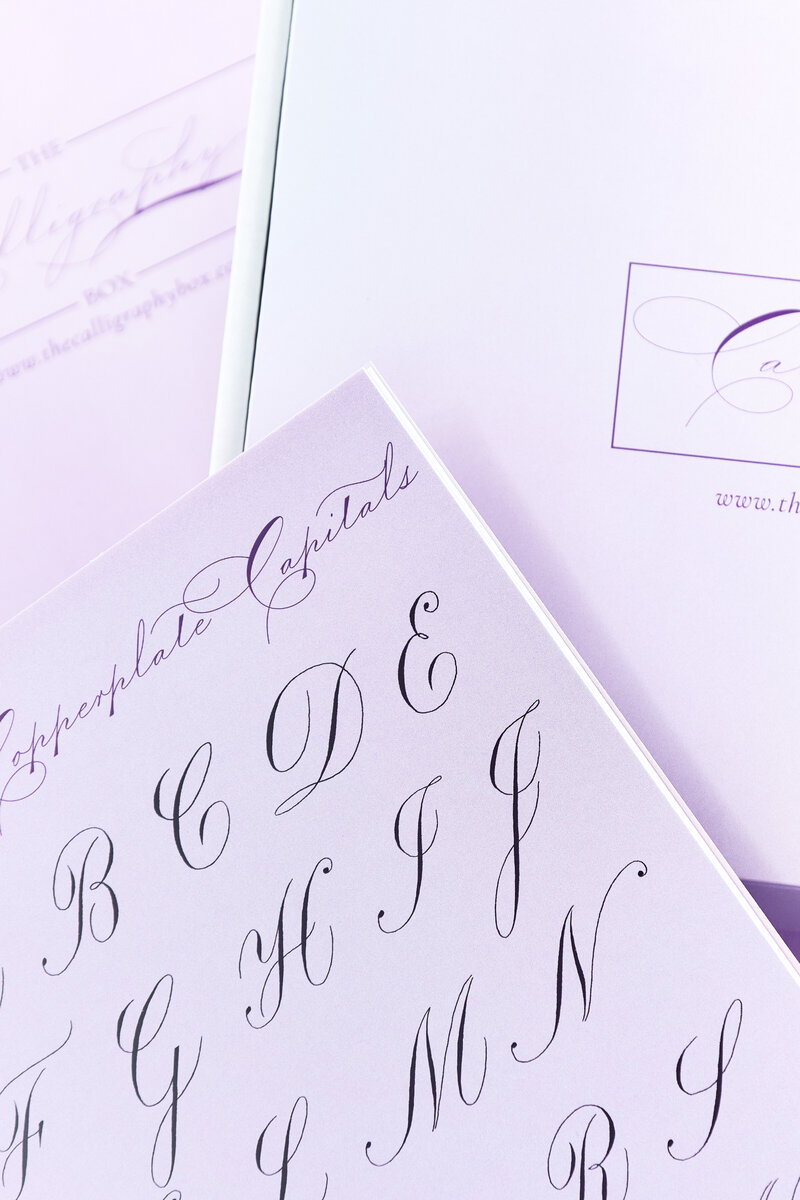 THE
Calligraphy
BOX
www.thecalligraphybox.co
Ca
www.th
Copperplate Capitals
B C D E
F G H I J
L M N
R S